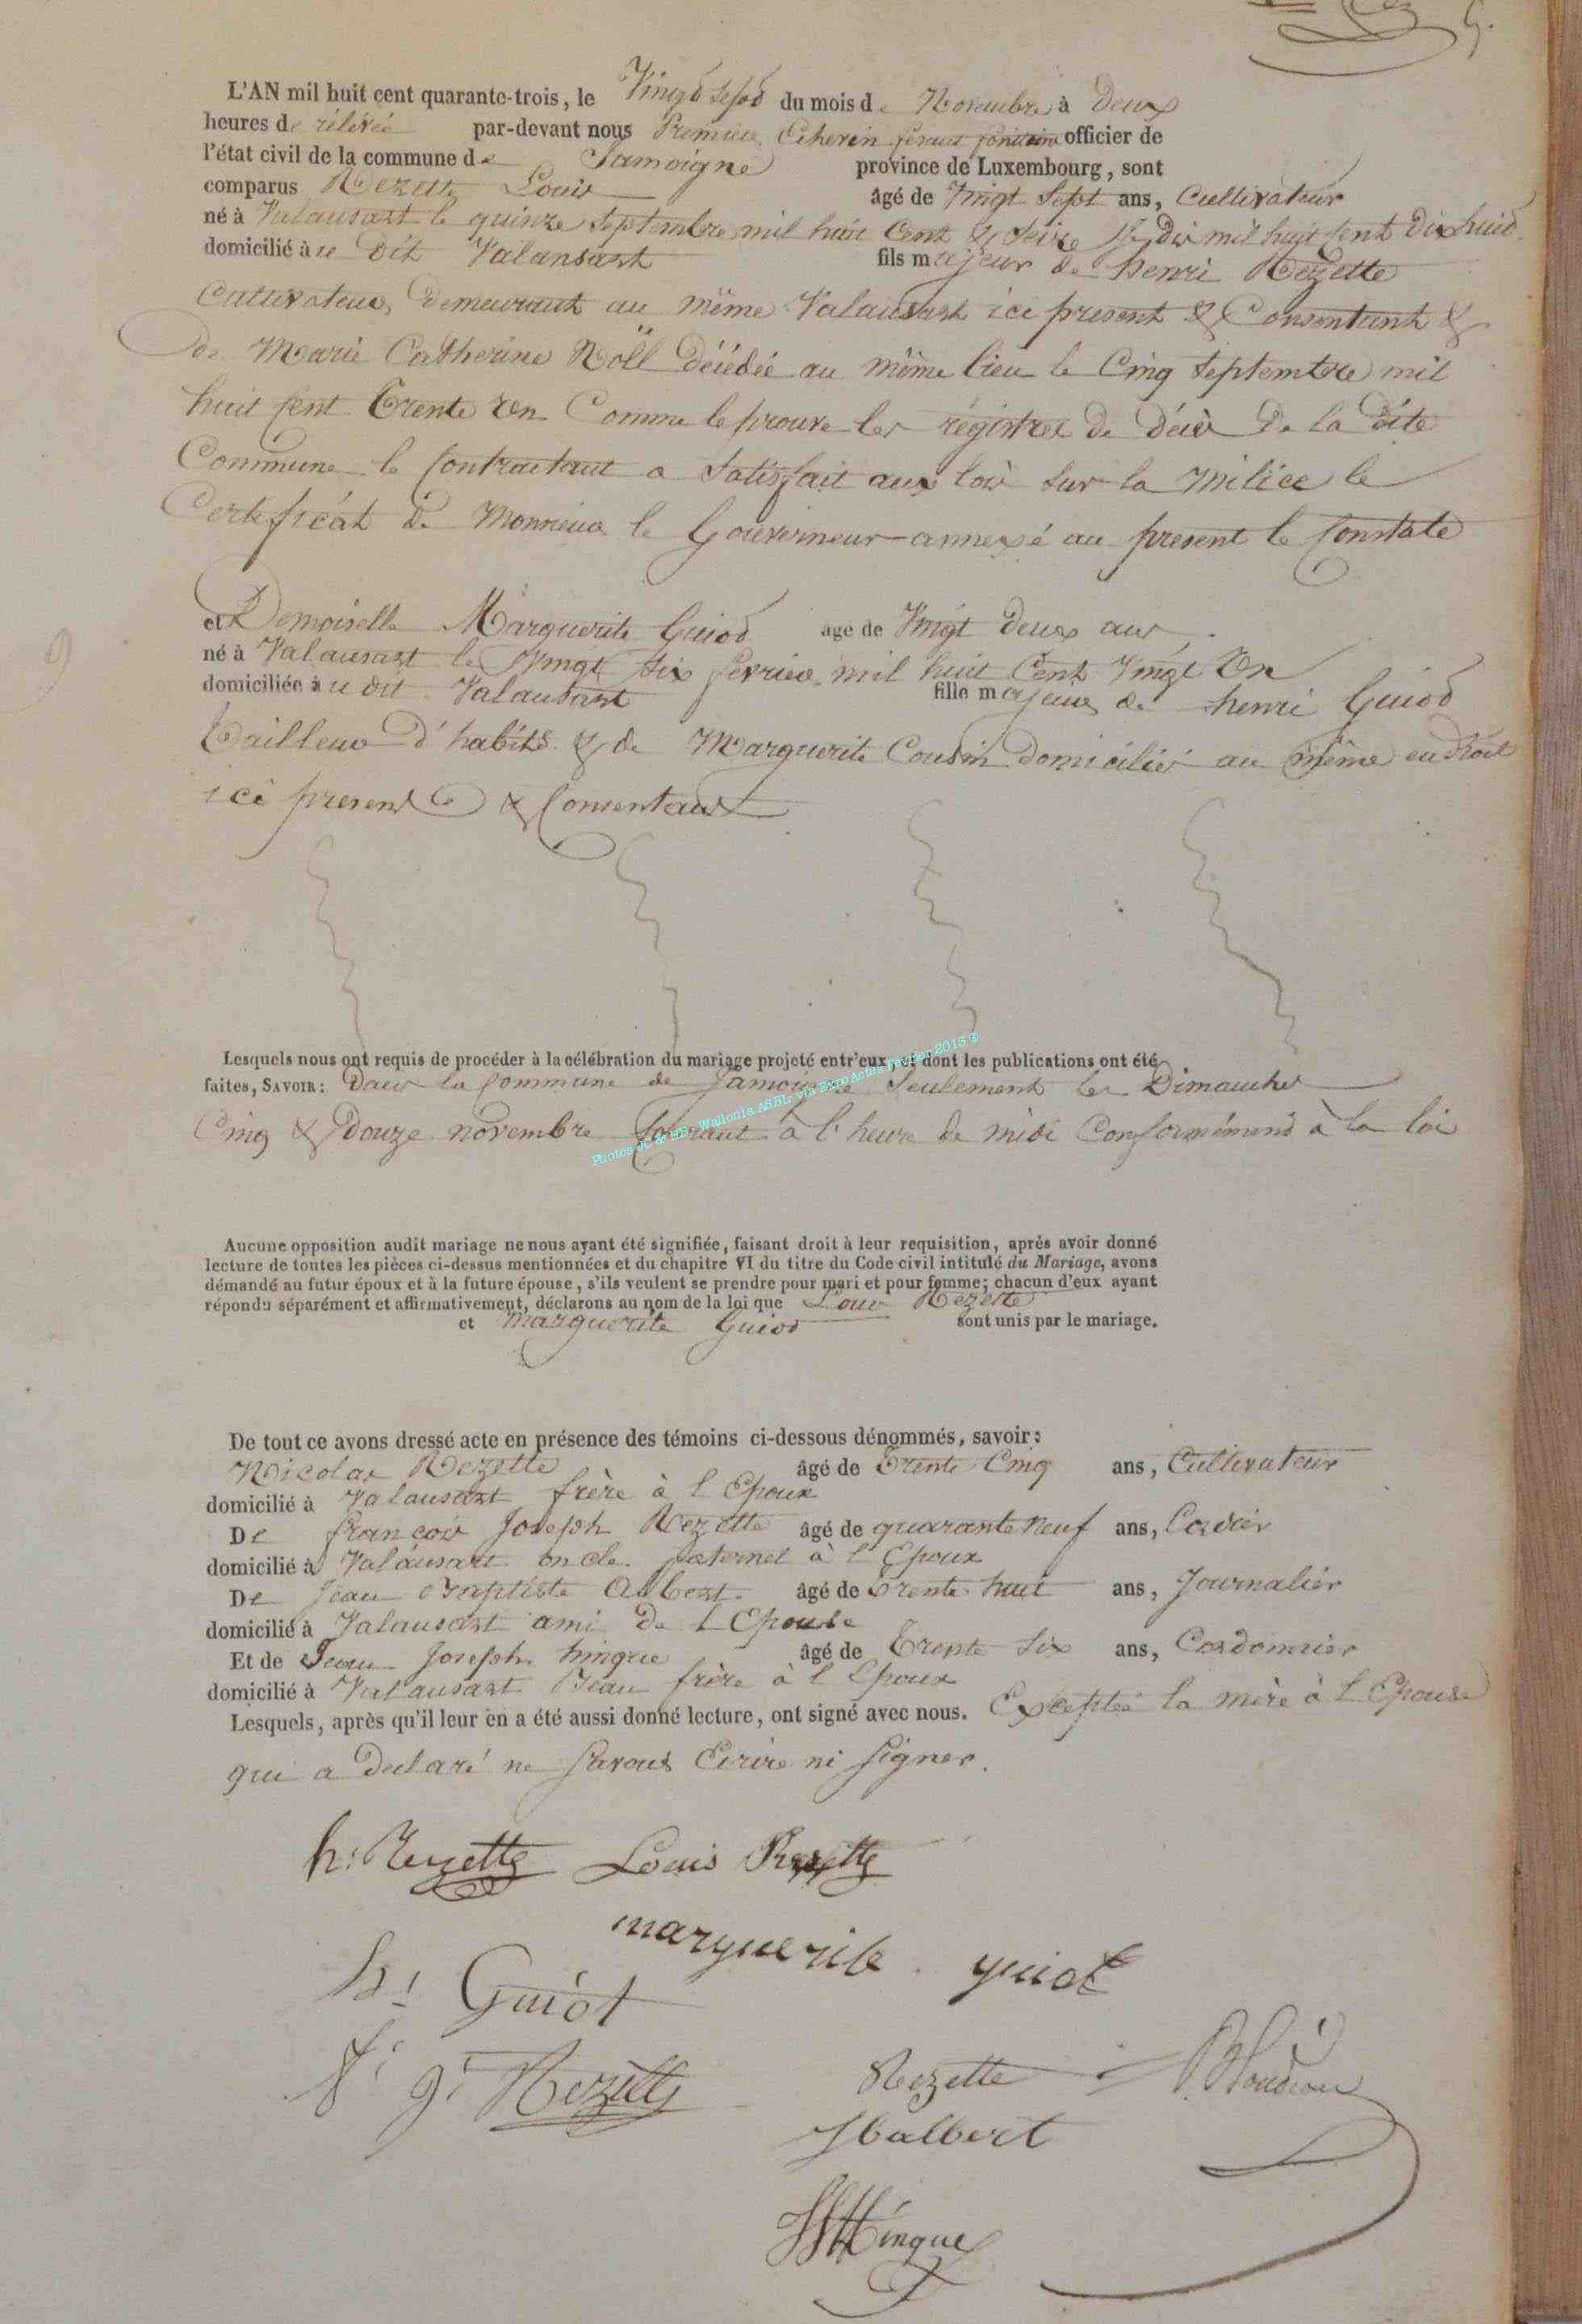 L'AN mil huit cent quarante-trois, le Vingt sept du mois de Novembre à Deux
heures de rélévée par-devant nous Premier Echevin fesant fonction officier de
l'état civil de la commune de Jamoigne province de Luxembourg, sont
comparus Rezette Louis âgé de Vingt Sept ans, Cultivateur
né à Valansart le quinze Septembre mil huit Cent & Seize mil huit Cent Dix huit
domicilié au dit Valansart fils majeur de henri Rezette
Cultivateur, Demeurant au même Valansart ici present & Consentant &
de Marie Catherine Nöll Décédée au même lieu le Cinq Septembre mil
huit Cent Trente Un Comme le prouve les régistres de décès De la dite
Commune le Contractant a Satisfait aux lois Sur la Milice le
Certificat de Monsieur le Gouverneur annexé au present le Constate
et Demoiselle Marguerite Guiot âgé de Vingt Deux ans
né à Valansart le Vingt Six fevrier mil huit Cent Vingt Un
domiciliée au dit Valansart fille majeure de henri Guiot
Tailleur d'habits & de Marguerite Cousin Domiciliés au même endroit
ici present & Consentant
Lesquels nous ont requis de procéder à la célébration du mariage projeté entr'eux, et dont les publications ont été
faites, SAVOIR: Dans la Commune de Jamoigne Seulement les Dimanches
Cinq & Douze novembre Courant à l'heure de midi Conformément à la loi
Photos JC & BB, Wallonia ASBL via ExpoActes Fevrier 2015 ©
Aucune opposition audit mariage ne nous ayant été signifiée, faisant droit à leur requisition, après avoir donné
lecture de toutes les pièces ci-dessus mentionnées et du chapitre VI du titre du Code civil intitulé du Mariage, avons
démandé au futur époux et à la future épouse, s'ils veulent se prendre pour mari et pour femme; chacun d'eux ayant
répondu séparément et affirmativement, déclarons au nom de la loi que Louis Rezette
et Marguerite Guiot sont unis par le mariage.
De tout ce avons dressé acte en présence des témoins ci-dessous dénommés, savoir:
Nicolas Rezette âgé de Trente Cinq ans, Cultivateur
domicilié à Valansart frère à l Epoux
De françois Joseph Rezette âgé de quarante Neuf ans, Cordier
domicilié à Valansart oncle paternel à l'Epoux
De Jean Baptiste Albert âgé de Trente huit ans, Journalier
domicilié à Valansart ami De l Epouse
Et de Jean Joseph hingue âgé de Trente Six ans, Cordonnier
domicilié à Valansart Beau frère à l Epoux
Lesquels, après qu'il leur en a été aussi donné lecture, ont signé avec nous. Exceptée la mère à l Epouse
qui a declaré ne Savoir Ecrire ni Signer.
h: Rezette Louis Rezette
marguerite guiot
h: Guiot
f: j: Rezette Rezette
JBalbert
JJHingue